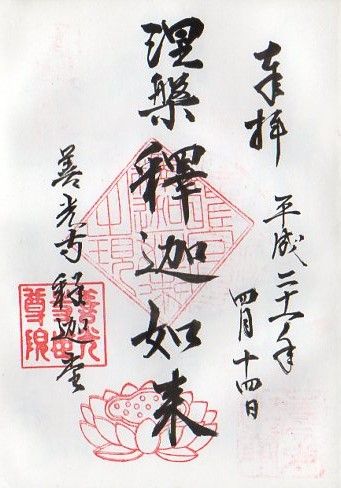 奉拝
平成二十六年
四月十四日
涅槃釋迦如来
善光寺釈迦堂
善光
寺世
尊院